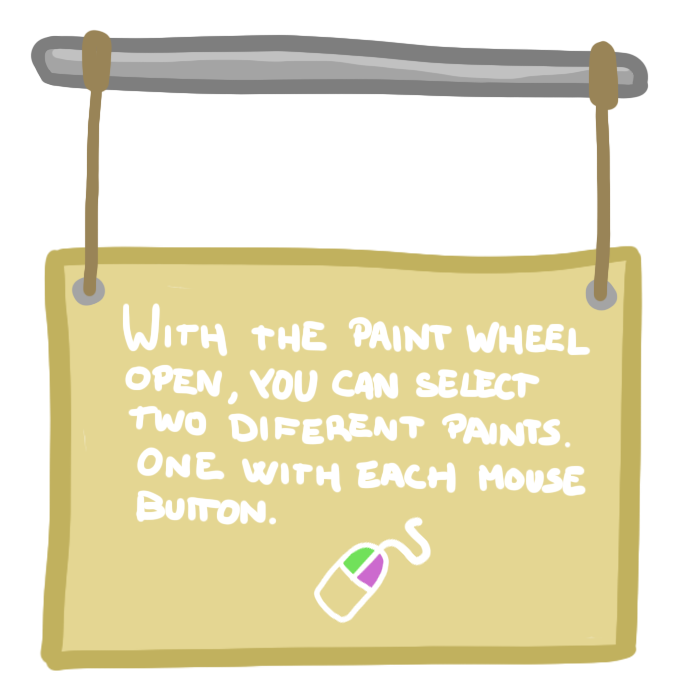 WITH THE PAINT WHEEL
OPEN, YOU CAN SELECT
TWO DIFERENT PAINTS.
ONE WITH EACH MOUSE
BUTTON.